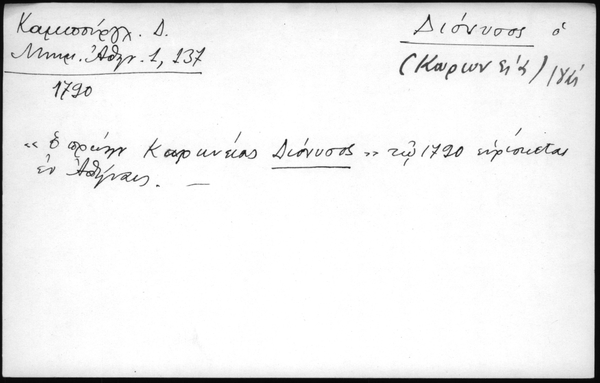 Καμπούρογλ. Δ.
Μνημ. Ἀθην. 1, 237
1790
Διόνυσος ὁ
(Καρων εί ς)
« ὁ πρώην Καρυνείας Διόνυσος » τῷ 1790 εὑρίσκεται
ἐν Ἀθήναις. —